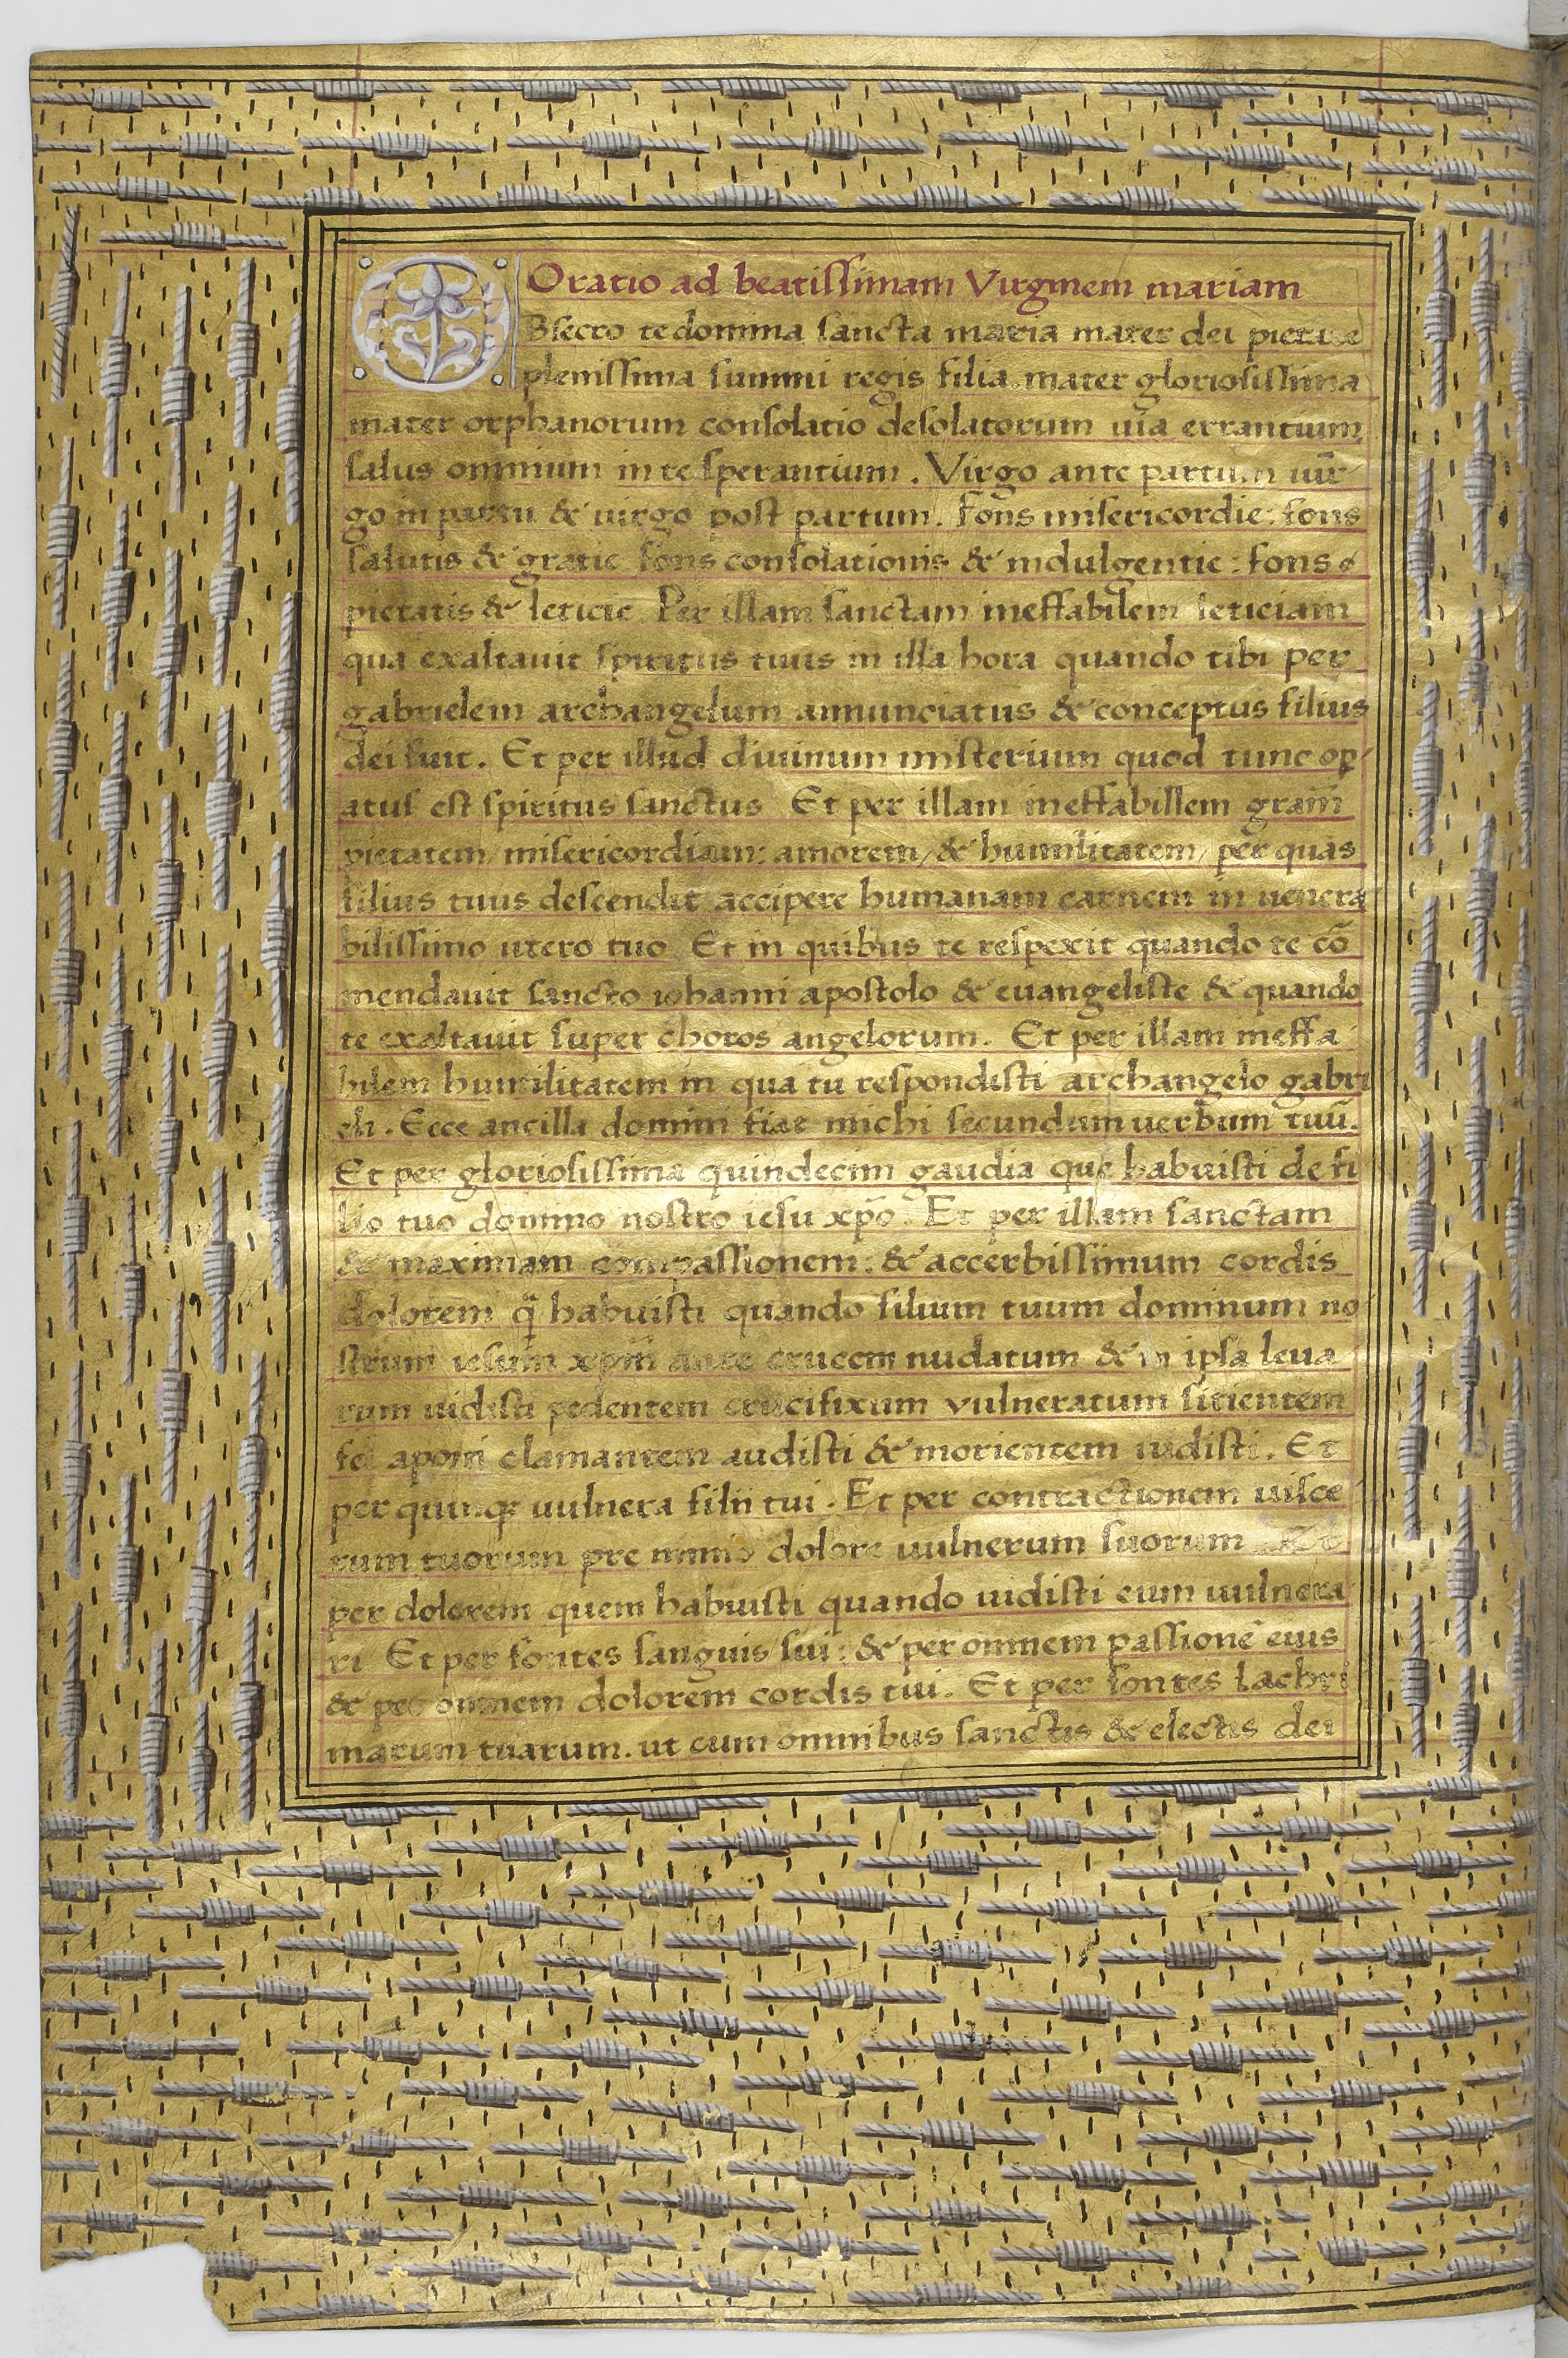 Oratio ad beatissimam Virginem mariam
OBsecro te domina sancta maria mater dei pietate
plenissima summi regis filia mater gloriosissima
mater orphanorum consolatio desolatorum uia errantium
salus omnium in te sperantium. Virgo ante partum uir
go in partu & uirgo post partum. Fons misericordie: fons
salutis & gratie fons consolationis & indulgentie: fons
pietatis & leticie Per illam sanctam ineffabilem leticiam
qua exaltauit spiritus tuus in illa hora quando tibi per
gabrielem archangelum annunciatus & conceptus filius
dei fuit. Et per illud diuinum misterium quod tunc op̄
atus est spiritus sanctus Et per illam ineffabillem gram̄
pietatem/ misericordiam: amorem/ & humilitatem/ per quas
filius tuus descendit accipere humanam carnem in uenera
bilissimo utero tuo Et in quibus te respexit quando te cō
mendauit sancto iohanni apostolo & euangeliste & quando
te exaltauit super choros angelorum. Et per illam ineffa
bilem humilitatem in qua tu respondisti archangelo gabri
eli. Ecce ancilla domini fiat michi secundum uerbum tuū.
Et per gloriosissima quindecim gaudia que habuisti de fi
lio tuo domino nostro iesu xp̄o. Et per illam sanctam
& maximam compassionem: & accerbissimum cordis
dolorem q̄ habuisti quando filium tuum dominum no
strum iesum xp̄m ante crucem nudatum & in ipsa leua
rum uidisti pedentem crucifixum vulneratum sitientem
fel aponi clamantem audisti & morientem uidisti. Et
per quinq; uulnera filii tui. Et per contractionem uisce
rum tuorum pre nimio dolore uulnerum suorum Et
per dolorem quem habuisti quando uidisti eum uulnera
ri Et per fontes sanguis sui: & per omnem passionē eius
& per omnem dolorem cordis tui. Et per fontes lachri
marum tuarum. ut cum omnibus sanctis & electis dei